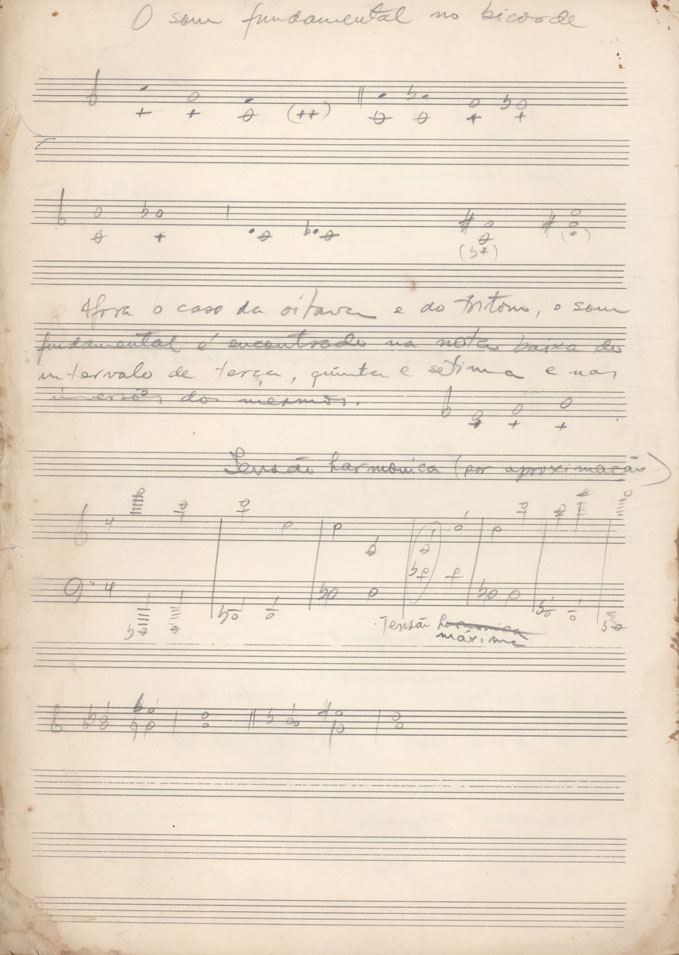 O som fundamental no bicorde
Fora o caso da oitava e do tritono, o som
fundamental é encontrado na nota baixa do
intervalo de terça, quinta e sétima e nas
inversões dos mesmos.
Tensão harmonica (por aproximação)
Tensão harmonica
máxima